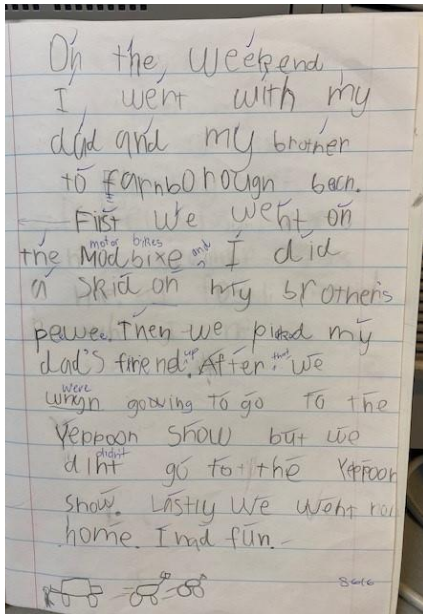 On the, weekend
I went with my
dad and my brother
to Farnborough bech.
First we went on
motor bikes and
the Modbixe I did
a skid on my brother's
pewee. Then we picked my
up that
dad's friend. After we
were
whgn gowing to go to the
Yeppoon show but we
didn't
diht go to the Yeppoon
show. Lastly we went
home. I had fun.